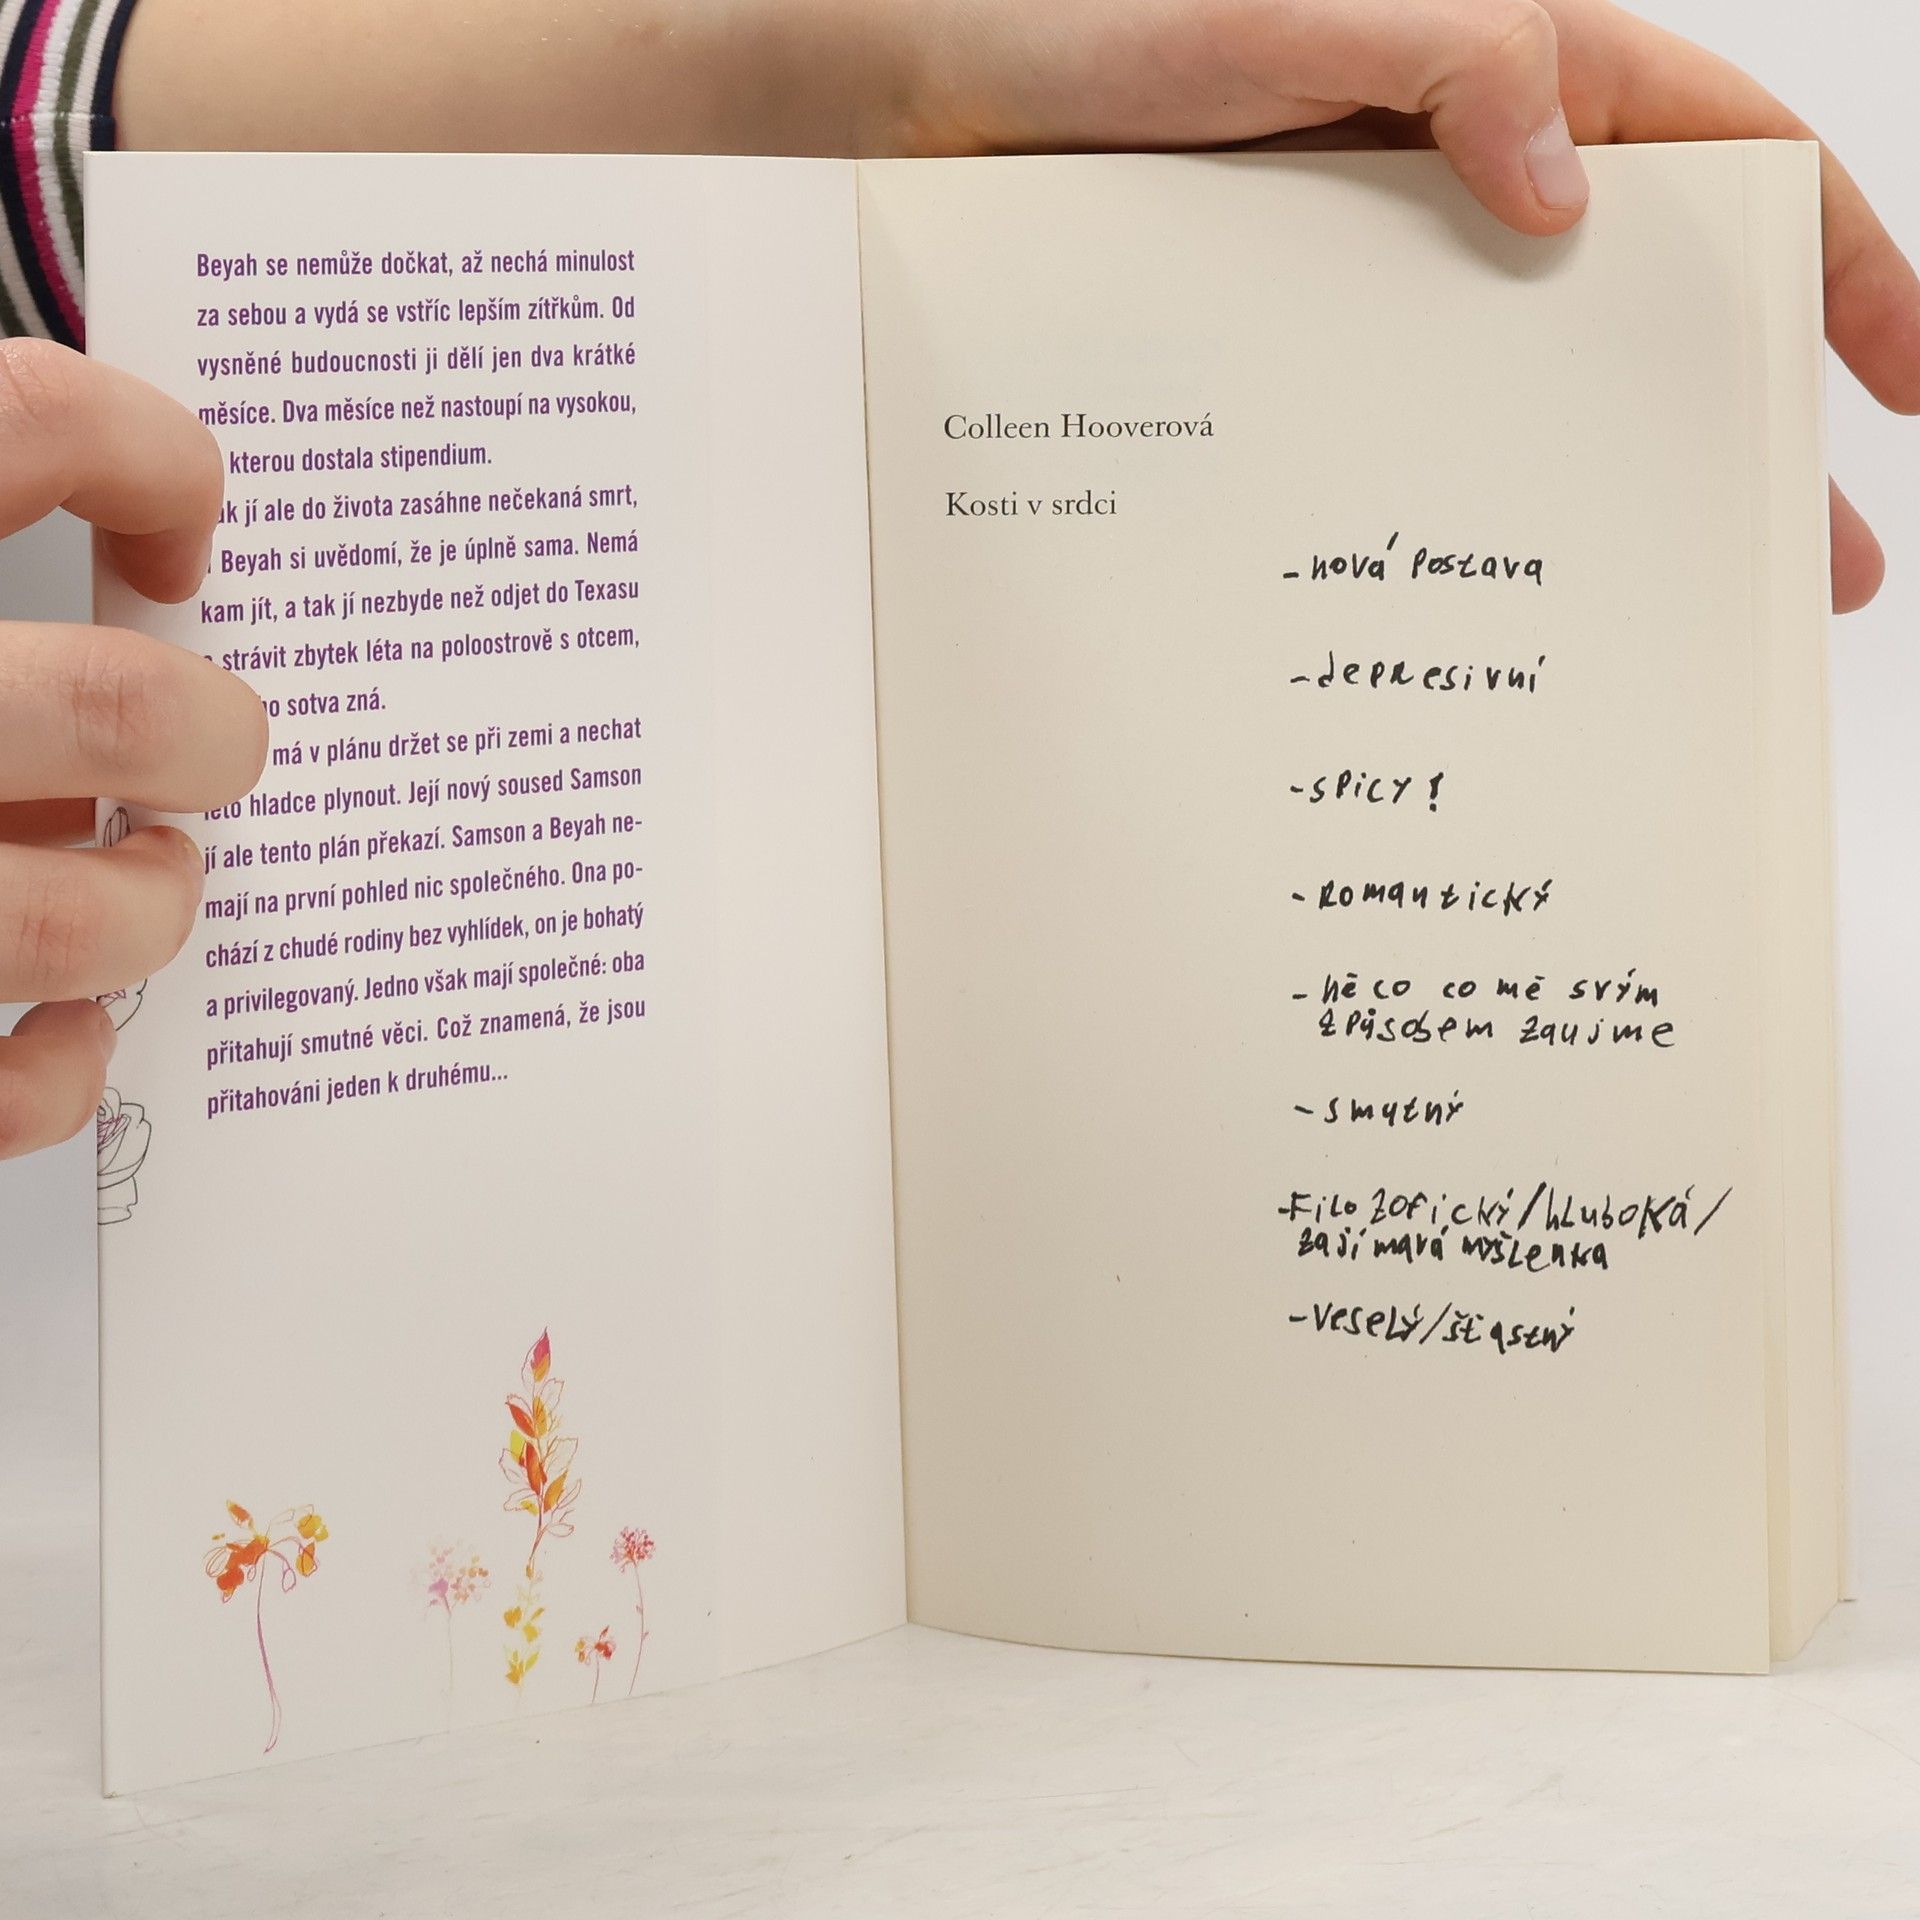 Beyah se nemůže dočkat, až nechá minulost
za sebou a vydá se vstříc lepším zítřkům. Od
vysněné budoucnosti ji dělí jen dva krátké
měsíce. Dva měsíce než nastoupí na vysokou,
kterou dostala stipendium.
jí ale do života zasáhne nečekaná smrt,
Beyah si uvědomí, že je úplně sama. Nemá
kam jít, a tak jí nezbyde než odjet do Texasu
strávit zbytek léta na poloostrově s otcem,
sotva zná.
má v plánu držet se při zemi a nechat
léto hladce plynout. Její nový soused Samson
jí ale tento plán překazí. Samson a Beyah ne-
mají na první pohled nic společného. Ona po-
chází z chudé rodiny bez vyhlídek, on je bohatý
a privilegovaný. Jedno však mají společné: oba
přitahují smutné věci. Což znamená, že jsou
přitahováni jeden k druhému...
Colleen Hooverová
Kosti v srdci
- nová postava
- depresivní
- spicy!
- romantický
- něco co mě svým
způsobem zaujme
- smutný
- Filozofický/hluboká/
zajímavá myšlenka
- veselý/šťastný